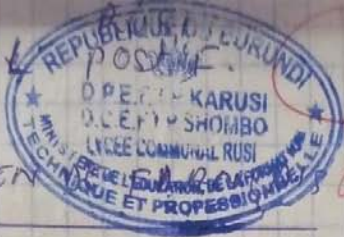 REPUBLIQUE DU BURUNDI
POSITIF
D.P.E.F.T.P KARUSI
D.C.E.F.T.P SHOMBO
LYCEE COMMUNAL RUSI
MINISTERE DE L'EDUCATION, DE LA FORMATION
TECHNIQUE ET PROFESSIONNELLE